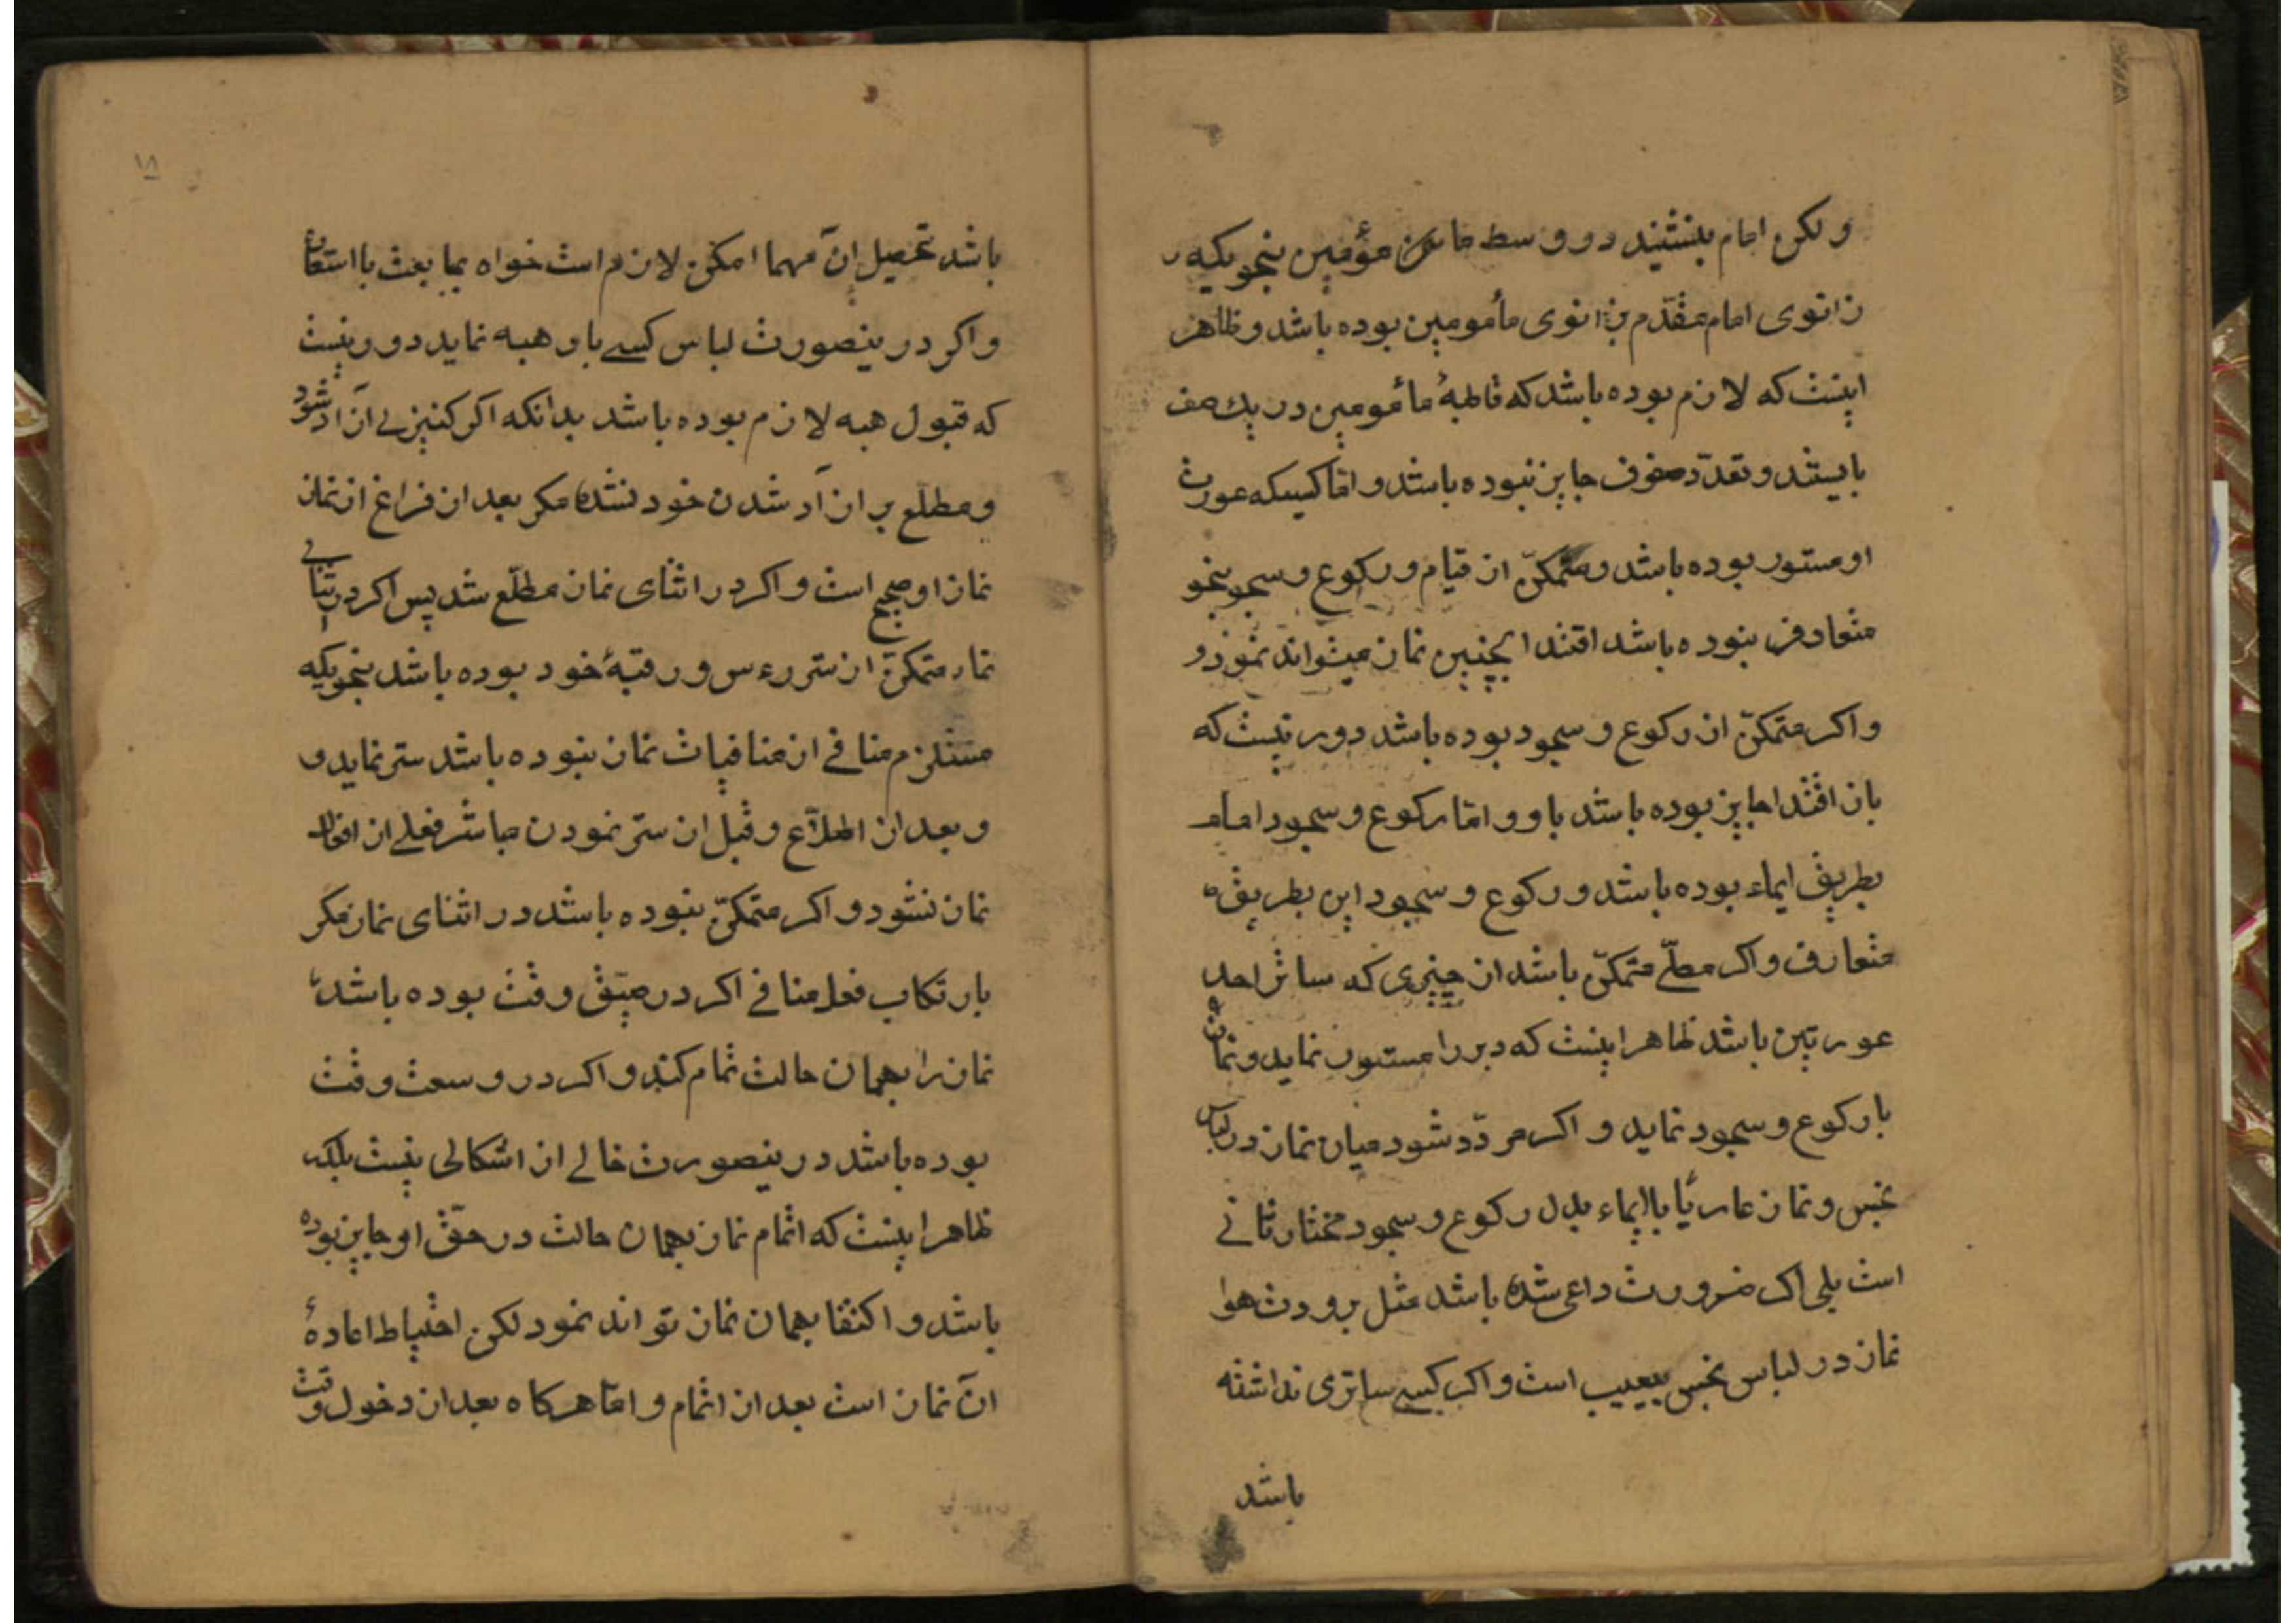 ولکن امام بنشیند در وسط مؤمین بنحویکه
زانوی امام مقدّم بزانوی مأمومین بوده باشد و ظاهر
اینست که لازم بوده باشد که قاطبهٔ مأمومین در یك صف
بایستند و تعدّد صفوف جایز نبوده باشد و امّا کسیکه عورت
او مستور بوده باشد و متمکّن از قیام و رکوع و سجو بنحو
متعارف نبوده باشد اقتدا بچنین نماز میتواند نمود و
و اکر متمکّن از رکوع و سجود بوده باشد دور نیست که
بان اقتدا جایز بوده باشد باو و امّا رکوع و سجود امام
بطریق ایماء بوده باشد و رکوع و سجود این بطریق
متعارف و اکر مصلّے متمکّن باشد از چیزی که ساتر احد
عورتین باشد ظاهر اینست که دبر را مستور نماید و نماز
با رکوع و سجود نماید و اکر مردّد شود میان نماز در لباس
نجس و نماز عاریًا با ایماء بدل رکوع و سجود مختار ثانے
است بلی اکر ضرورت داعی شده باشد مثل برودت هوا
نماز در لباس نجس بیعیب است و اکر کسے ساتری نداشته
باشد
۱۸
باشد تحصیل آن مهما امکن لازم است خواه بمایعت با استعا
و اکر در ینصورت لباس کسے باو هبه نماید دور نیست
که قبول هبه لازم بوده باشد بدانکه اکر کنیزے آزاد شود
و مطلع بر ازآد شدن خود نشده مکر بعد از فراغ از نماز
نماز او صحیح است و اکر در اثنای نماز مطلّع شد پس اکر در اثنای
نماز متمکّن از ستر رءس و رقبهٔ خود بوده باشد بنحویکه
مستلزم منافے از منافیات نماز نبوده باشد ستر نماید و
و بعد از اطلاّع و قبل از ستر نمودن مباشر فعلے از افعال
نماز نشود و اکر متمکّن نبوده باشد در اثنای نماز مکر
بارتکاب فعل منافے اکر در ضیق وقت بوده باشد
نماز را بهمان حالت تمام کند و اکر در وسعت وقت
بوده باشد در ینصورت خالے از اشکالی نیست بلکه
ظاهر اینست که اتمام نماز بهمان حالت در حقّ او جایز بوده
باشد و اکتفا بهمان نماز تواند نمود لکن احتیاط اعادهٔ
آن نماز است بعد از اتمام و امّا هرکاه بعد از دخول وقت